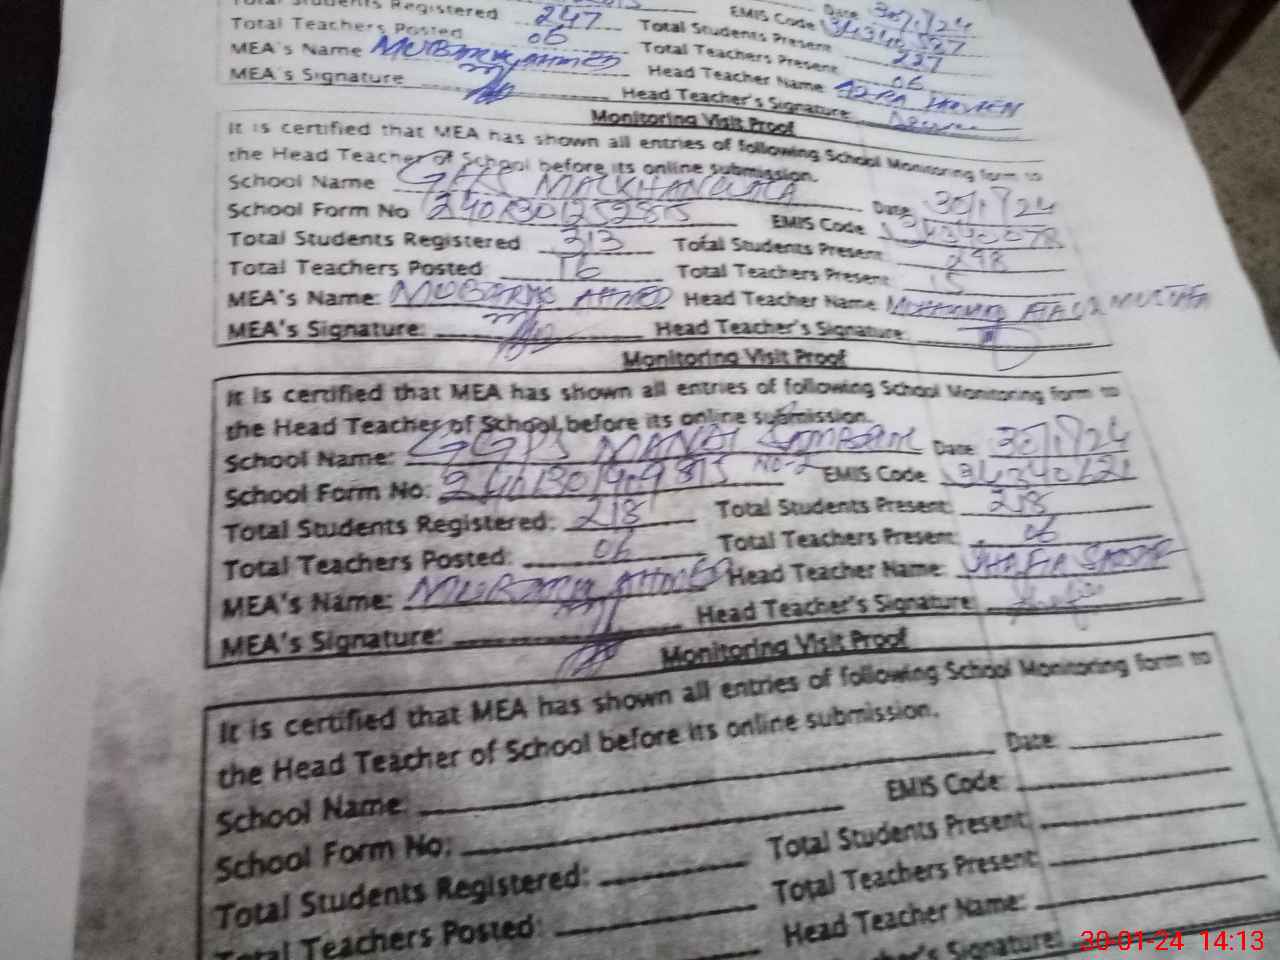 Total Students Registered 247 EMIS Code Date 30/1/24
Total Teachers Posted 06 Total Students Present 227
MEA's Name MUBARAK AHMED Total Teachers Present 06
MEA's Signature Head Teacher Name AZRA
Head Teacher's Signature:
Monitoring Visit Proof
It is certified that MEA has shown all entries of following School Monitoring form to
the Head Teacher of School before its online submission.
School Name Date 30/1/24
School Form No EMIS Code 34340078
Total Students Registered 313 Total Students Present 298
Total Teachers Posted: 16 Total Teachers Present: 15
MEA's Name: MUBARAK AHMED Head Teacher Name
MEA's Signature: Head Teacher's Signature:
Monitoring Visit Proof
It is certified that MEA has shown all entries of following School Monitoring form to
the Head Teacher of School before its online submission.
School Name: GGPS Date 30/1/24
School Form No: No-2 EMIS Code 34340121
Total Students Registered: 218 Total Students Present: 218
Total Teachers Posted: 06 Total Teachers Present: 06
MEA's Name: MUBARAK AHMED Head Teacher Name:
MEA's Signature: Head Teacher's Signature:
Monitoring Visit Proof
It is certified that MEA has shown all entries of following School Monitoring form to
the Head Teacher of School before its online submission.
School Name: Date:
School Form No: EMIS Code:
Total Students Registered: Total Students Present:
Total Teachers Posted: Total Teachers Present:
Head Teacher Name:
Signature:
30-01-24 14:13